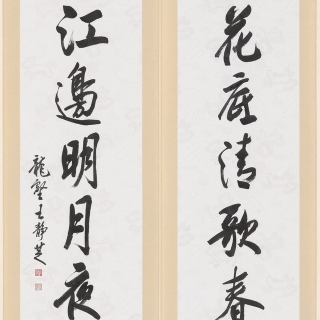 花底清歌春
江邊明月夜
龍壑王靜芝